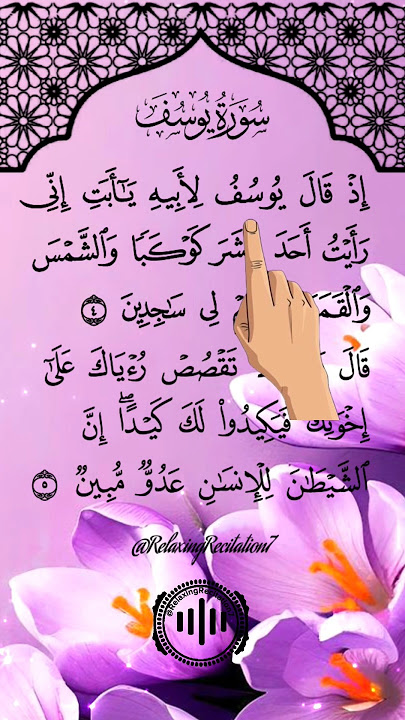 سُورَةُ يُوسُفَ
إِذۡ قَالَ يُوسُفُ لِأَبِيهِ يَـٰٓأَبَتِ إِنِّي
رَأَيۡتُ أَحَدَ كَوۡكَبٗا وَٱلشَّمۡسَ
لِي سَٰجِدِينَ ٤
قَالَ تَقۡصُصۡ رُءۡيَاكَ عَلَىٰٓ
فَيَكِيدُواْ لَكَ كَيۡدًاۖ إِنَّ
ٱلشَّيۡطَٰنَ لِلۡإِنسَٰنِ عَدُوّٞ مُّبِينٞ ٥
@RelaxingRecitation7